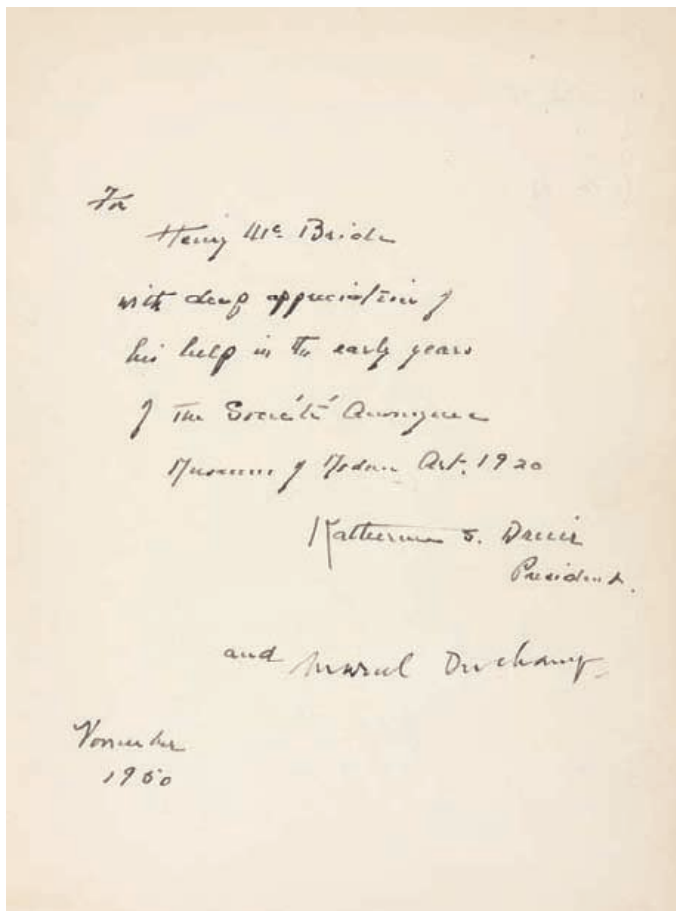 For
Henry McBride
with deep appreciation of
his help in the early years
of The Société Anonyme
Museum of Modern Art. 1920
Katherine S. Dreier
President.
and Marcel Duchamp
November
1950